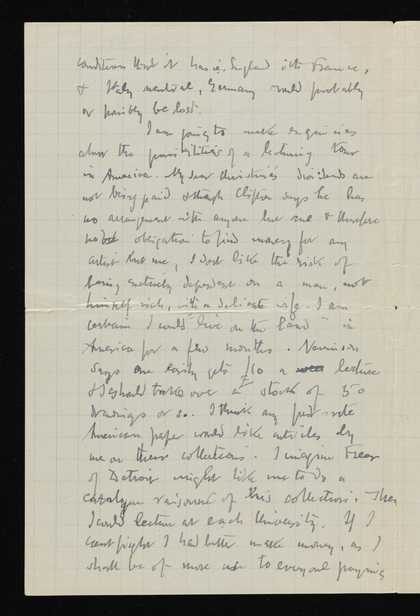 condition that it has is England with France,
& Italy neutral, Germany could probably
or possibly be lost.
I am going to make enquiries
about the possibilities of a lecturing tour
in America. My dear Christine's dividends are
not being paid & though Clifton says he has
no arrangement with anyone but me & therefore
no obligation to find money for any
artist but me, I dont like the risk of
being entirely dependent on a man, not
himself rich, with a delicate wife. I am
certain I could "live on the land" in
America for a few months.
says one easily gets £10 a lecture
& I should take over a stock of 50
drawings or so. I think any first rate
American paper would like articles by
me on their collections. I imagine Freer
of Detroit might like me to do a
catalogue raisonné of his collection. Then
I could lecture at each University. If I
cant fight I had better make money, as I
shall be of more use to everyone paying